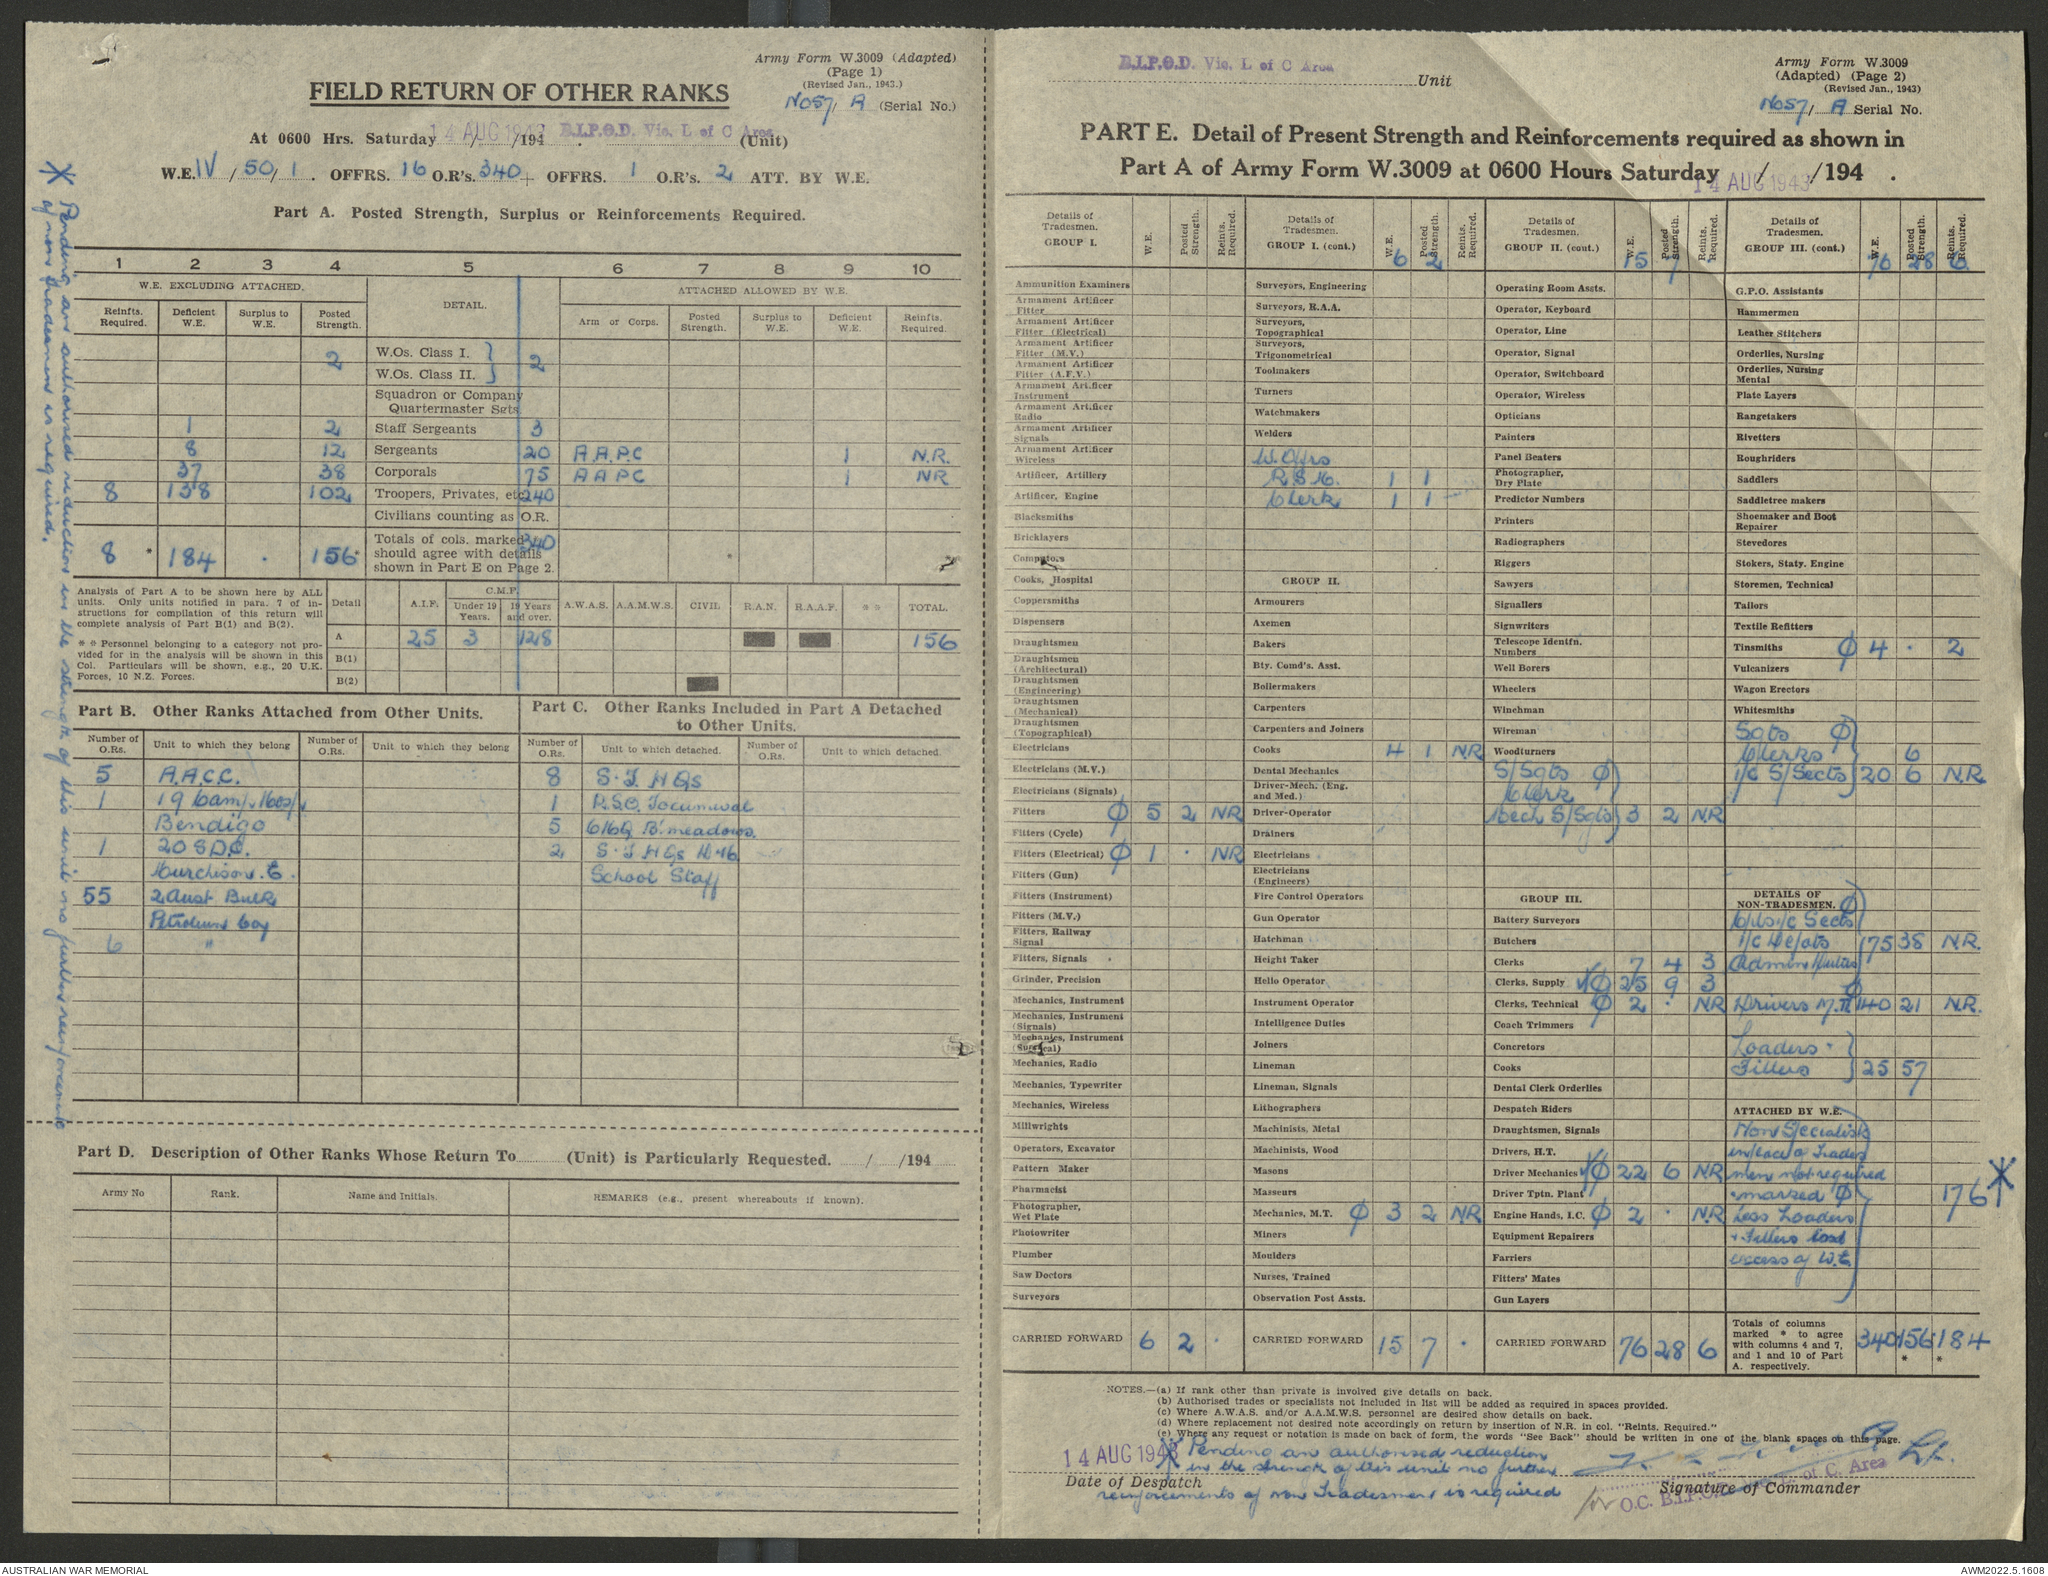 Army Form W.3009 (Adapted)
(Page 1)
(Revised Jan., 1943.)
FIELD RETURN OF OTHER RANKS
No57/ A (Serial No.)
At 0600 Hrs. Saturday 14 AUG 1943 /194 . B.I.P.O.D. Vic. L of C Area (Unit)
W.E. IV / 50 / 1 . OFFRS. 16 O.R's. 340 + OFFRS. 1 O.R's. 2 ATT. BY W.E.
Part A. Posted Strength, Surplus or Reinforcements Required.
* Pending an authorised reduction in the strength of this unit no further reinforcements
of non tradesmen is required.
1 2 3 4 5 6 7 8 9 10
W.E. EXCLUDING ATTACHED. DETAIL. ATTACHED ALLOWED BY W.E.
Reinfts. Required. Deficient W.E. Surplus to W.E. Posted Strength. Arm or Corps. Posted Strength. Surplus to W.E. Deficient W.E. Reinfts. Required.
2 W.Os. Class I. 2
W.Os. Class II.
Squadron or Company
Quartermaster Sgts.
1 2 Staff Sergeants 3
8 12 Sergeants 20 A A.P.C 1 N.R.
37 38 Corporals 75 A A P C 1 NR
8 138 102 Troopers, Privates, etc. 240
Civilians counting as O.R.
8 * 184 . 156* Totals of cols. marked * should agree with details shown in Part E on Page 2. 340
Analysis of Part A to be shown here by ALL units. Only units notified in para. 7 of instructions for compilation of this return will complete analysis of Part B(1) and B(2).
* * Personnel belonging to a category not provided for in the analysis will be shown in this Col. Particulars will be shown, e.g., 20 U.K. Forces, 10 N.Z. Forces.
Detail A.I.F. C.M.F. Under 19 Years. 19 Years and over. A.W.A.S. A.A.M.W.S. CIVIL R.A.N. R.A.A.F. * * TOTAL.
A 25 3 128 156
B(1)
B(2)
Part B. Other Ranks Attached from Other Units.
Number of O.Rs. Unit to which they belong Number of O.Rs. Unit to which they belong
5 A.A.C.C.
1 19 Camp Hosp.
Bendigo
1 20 S.D.C.
Murchison. E.
55 2 Aust Bulk
Petroleum Coy
6 "
Part C. Other Ranks Included in Part A Detached
to Other Units.
Number of O.Rs. Unit to which detached. Number of O.Rs. Unit to which detached.
8 S.T HQs
1 R.S.O. Tocumwal
5 B'meadows.
2 S.T HQs
School Staff
Part D. Description of Other Ranks Whose Return To (Unit) is Particularly Requested. / /194
Army No Rank. Name and Initials. REMARKS (e.g., present whereabouts if known).
B.I.P.O.D. Vic. L of C Area Unit
Army Form W.3009
(Adapted) (Page 2)
(Revised Jan., 1943)
No57/ A Serial No.
PART E. Detail of Present Strength and Reinforcements required as shown in
Part A of Army Form W.3009 at 0600 Hours Saturday 14 AUG 1943 / /194 .
Details of Tradesmen. GROUP I. W.E. Posted Strength. Reints. Required.
Ammunition Examiners
Armament Artificer Fitter
Armament Artificer Fitter (Electrical)
Armament Artificer Fitter (M.V.)
Armament Artificer Fitter (A.F.V.)
Armament Artificer Instrument
Armament Artificer Radio
Armament Artificer Signals
Armament Artificer Wireless
Artificer, Artillery
Artificer, Engine
Blacksmiths
Bricklayers
Computors
Cooks, Hospital
Coppersmiths
Dispensers
Draughtsmen
Draughtsmen (Architectural)
Draughtsmen (Engineering)
Draughtsmen (Mechanical)
Draughtsmen (Topographical)
Electricians
Electricians (M.V.)
Electricians (Signals)
Fitters ϕ 5 2 NR
Fitters (Cycle)
Fitters (Electrical) ϕ 1 . NR
Fitters (Gun)
Fitters (Instrument)
Fitters (M.V.)
Fitters, Railway Signal
Fitters, Signals
Grinder, Precision
Mechanics, Instrument
Mechanics, Instrument (Signals)
Mechanics, Instrument (Surgical)
Mechanics, Radio
Mechanics, Typewriter
Mechanics, Wireless
Millwrights
Operators, Excavator
Pattern Maker
Pharmacist
Photographer, Wet Plate
Photowriter
Plumber
Saw Doctors
Surveyors
CARRIED FORWARD 6 2 .
Details of Tradesmen. GROUP I. (cont.) W.E. Posted Strength. Reints. Required.
6 2
Surveyors, Engineering
Surveyors, R.A.A.
Surveyors, Topographical
Surveyors, Trigonometrical
Toolmakers
Turners
Watchmakers
Welders
W.Offrs
R.S.M. 1 1
Clerk 1 1
GROUP II.
Armourers
Axemen
Bakers
Bty. Comd's. Asst.
Boilermakers
Carpenters
Carpenters and Joiners
Cooks 4 1 NR
Dental Mechanics
Driver-Mech. (Eng. and Med.)
Driver-Operator
Drainers
Electricians
Electricians (Engineers)
Fire Control Operators
Gun Operator
Hatchman
Height Taker
Hello Operator
Instrument Operator
Intelligence Duties
Joiners
Lineman
Lineman, Signals
Lithographers
Machinists, Metal
Machinists, Wood
Masons
Masseurs
Mechanics, M.T. ϕ 3 2 NR
Miners
Moulders
Nurses, Trained
Observation Post Assts.
CARRIED FORWARD 15 7 .
Details of Tradesmen. GROUP II. (cont.) W.E. Posted Strength. Reints. Required.
15 7
Operating Room Assts.
Operator, Keyboard
Operator, Line
Operator, Signal
Operator, Switchboard
Operator, Wireless
Opticians
Painters
Panel Beaters
Photographer, Dry Plate
Predictor Numbers
Printers
Radiographers
Riggers
Sawyers
Signallers
Signwriters
Telescope Identfn. Numbers
Well Borers
Wheelers
Winchman
Wireman
Woodturners
S/Sgts ϕ
Clerk
Mech S/Sgts 3 2 NR
GROUP III.
Battery Surveyors
Butchers
Clerks 7 4 3
Clerks, Supply ϕ 25 9 3
Clerks, Technical ϕ 2 . NR
Coach Trimmers
Concretors
Cooks
Dental Clerk Orderlies
Despatch Riders
Draughtsmen, Signals
Drivers, H.T.
Driver Mechanics ϕ 22 6 NR
Driver Tptn. Plant
Engine Hands, I.C. ϕ 2 . N.R
Equipment Repairers
Farriers
Fitters' Mates
Gun Layers
CARRIED FORWARD 76 28 6
Details of Tradesmen. GROUP III. (cont.) W.E. Posted Strength. Reints. Required.
76 28 6
G.P.O. Assistants
Hammermen
Leather Stitchers
Orderlies, Nursing
Orderlies, Nursing Mental
Plate Layers
Rangetakers
Rivetters
Roughriders
Saddlers
Saddletree makers
Shoemaker and Boot Repairer
Stevedores
Stokers, Staty. Engine
Storemen, Technical
Tailors
Textile Refitters
Tinsmiths ϕ 4 . 2
Vulcanizers
Wagon Erectors
Whitesmiths
Sgts ϕ
Clerks 6
i/c S/Sects 20 6 N.R.
DETAILS OF NON-TRADESMEN. ϕ
Cpls i/c Sects
i/c Depots 75 38 N.R.
Admin Duties
ϕ
Drivers M.T. 140 21 N.R.
Loaders
Fillers 25 57
ATTACHED BY W.E.
Non Specialists
in place of Trades
men not required
marked ϕ 176 *
Less Loaders
+ Fillers
excess of W.E.
Totals of columns marked * to agree with columns 4 and 7, and 1 and 10 of Part A. respectively. 340 156 * 184 *
NOTES.—(a) If rank other than private is involved give details on back.
(b) Authorised trades or specialists not included in list will be added as required in spaces provided.
(c) Where A.W.A.S. and/or A.A.M.W.S. personnel are desired show details on back.
(d) Where replacement not desired note accordingly on return by insertion of N.R. in col. "Reints. Required."
(e) Where any request or notation is made on back of form, the words "See Back" should be written in one of the blank spaces on this page.
14 AUG 1943
Date of Despatch
* Pending an authorised reduction
in the strength of this unit no further
reinforcements of non Tradesmen is required
Lt.
for O.C. B.I.P.O.D. Vic. L of C. Area
Signature of Commander
AUSTRALIAN WAR MEMORIAL
AWM2022.5.1608